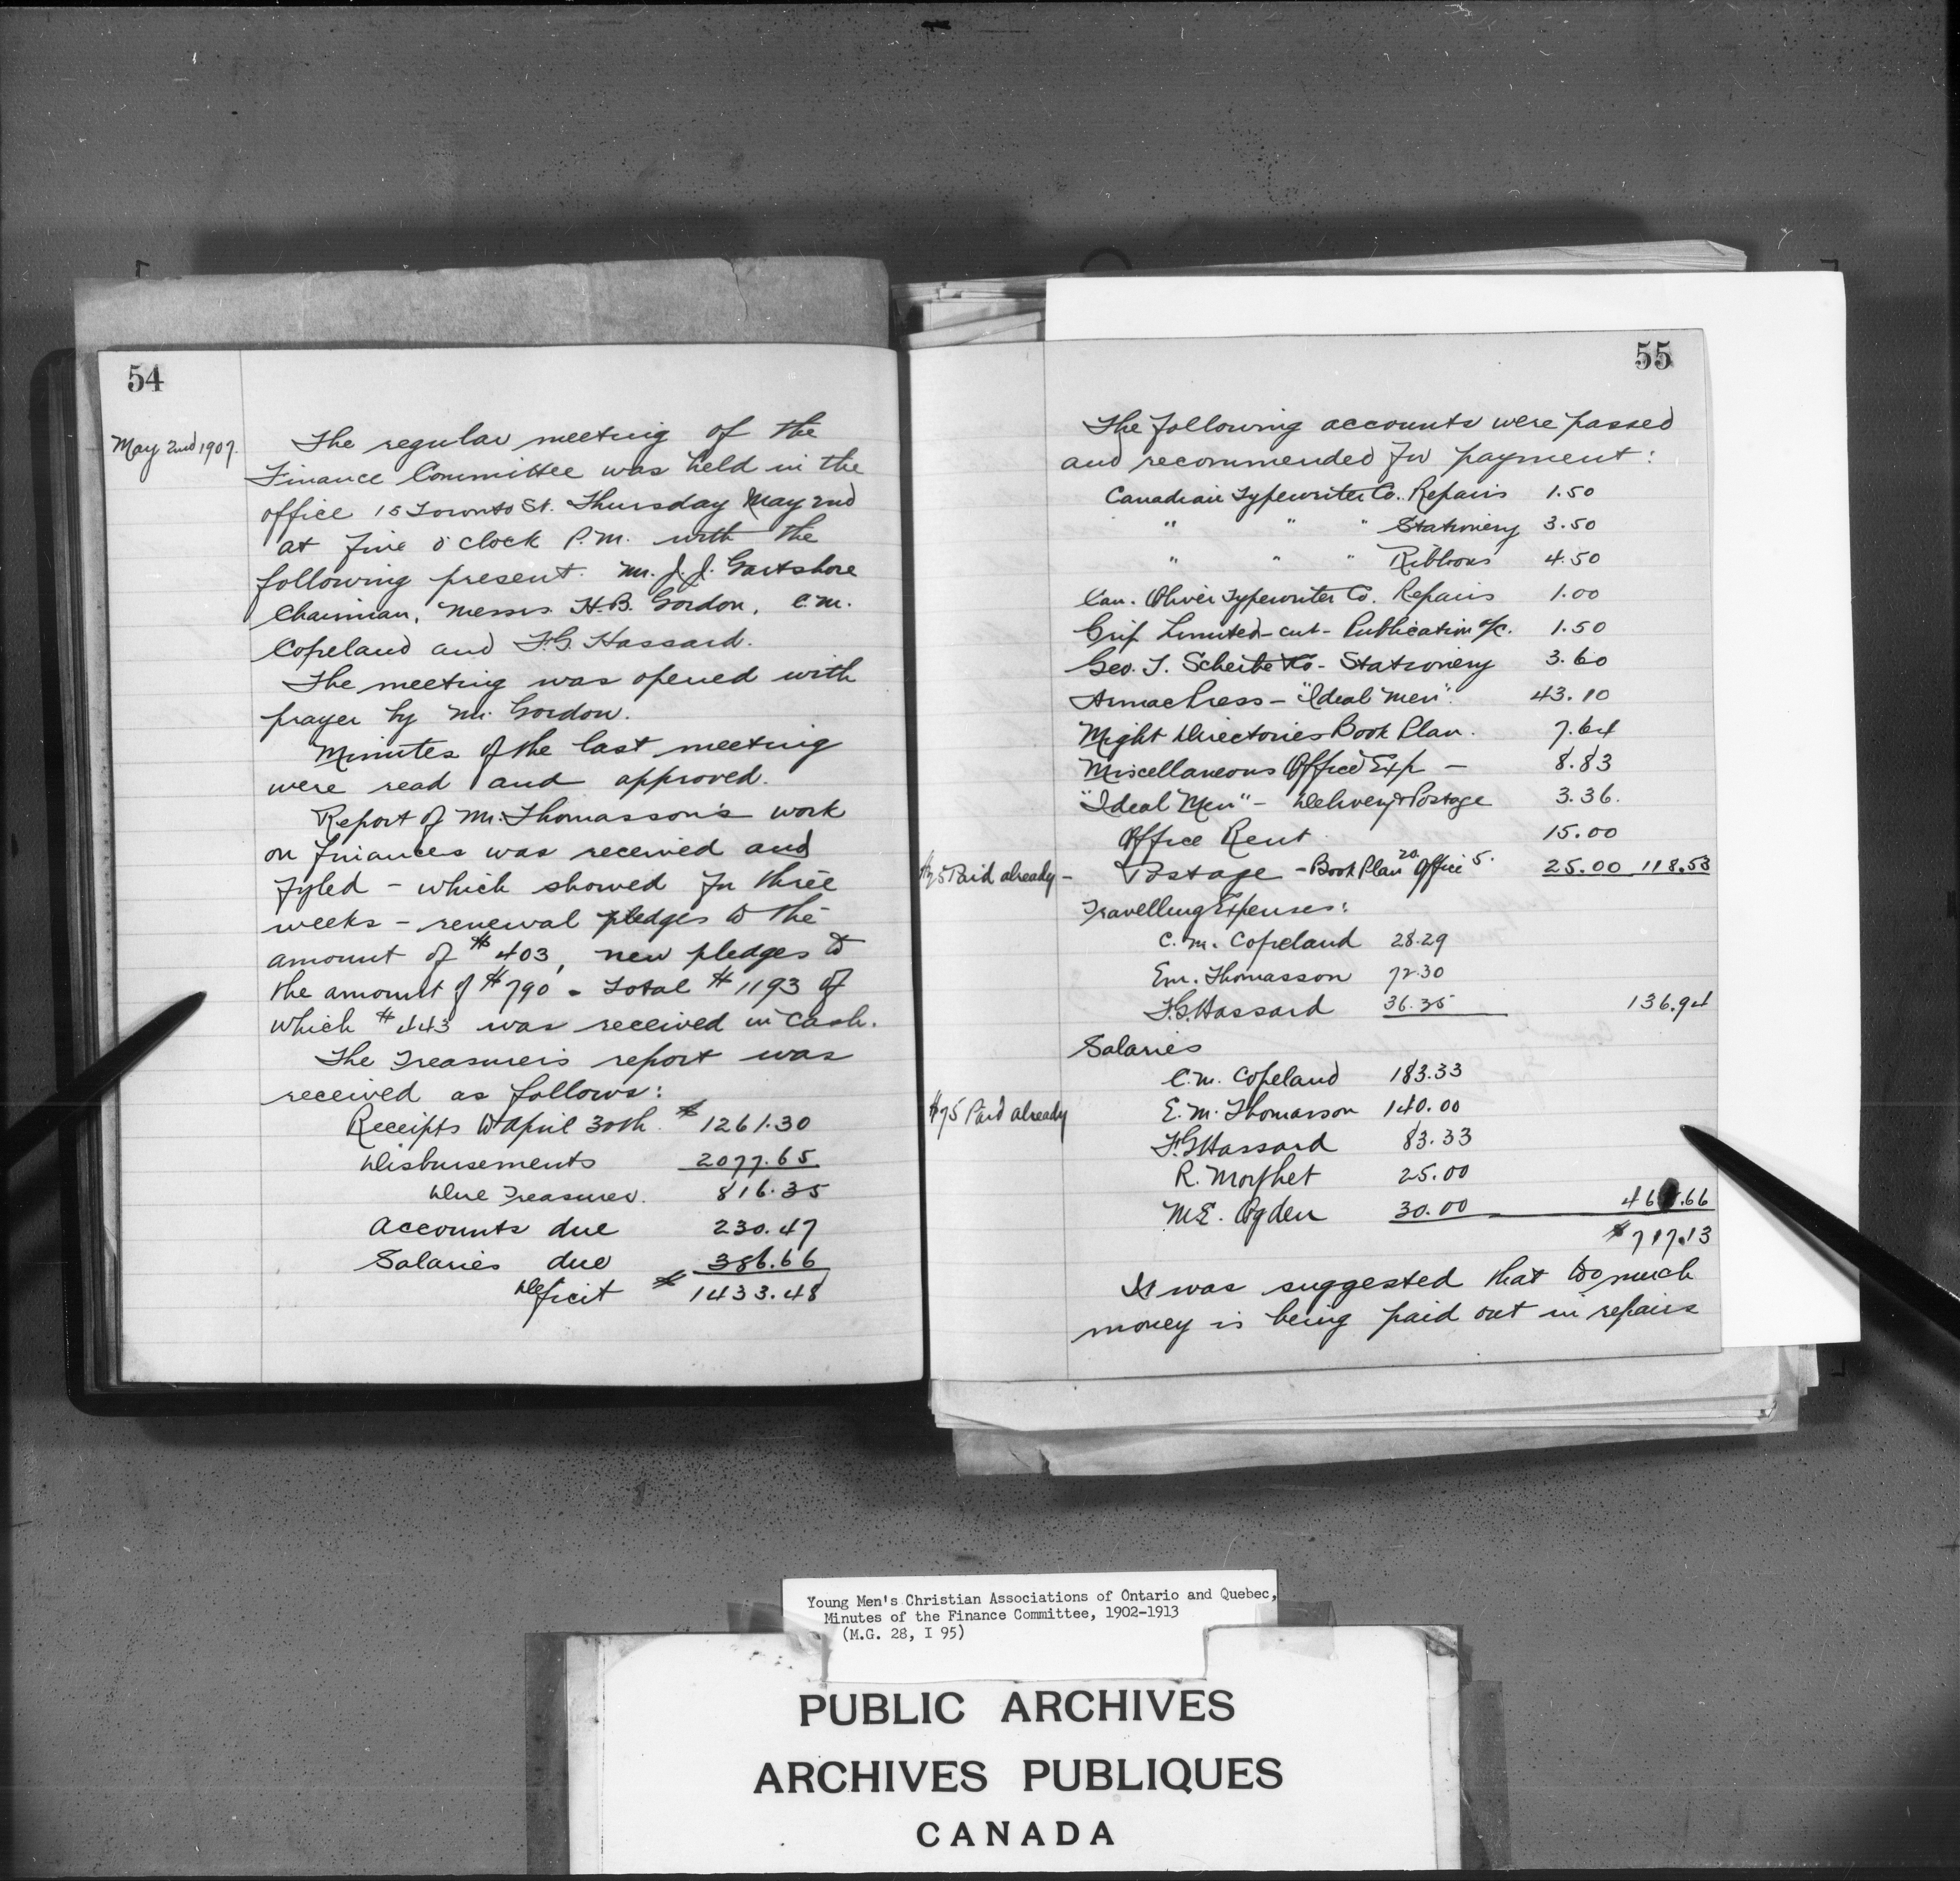 54
May 2nd 1907.
The regular meeting of the
Finance Committee was held in the
office 15 Toronto St. Thursday May 2nd
at five o'clock P.M. with the
following present. Mr. J. J. Gartshore
Chairman, Messrs. H.B. Gordon, C.M.
Copeland and F.G. Hassard.
The meeting was opened with
prayer by Mr. Gordon.
Minutes of the last meeting
were read and approved.
Report of Mr. Thomasson's work
on finances was received and
fyled - which showed for three
weeks - renewal pledges to the
amount of $403, new pledges to
the amount of $790 - Total $1193 of
which $443 was received in cash.
The Treasurer's report was
received as follows:
Receipts to April 30th. $1261.30
Disbursements 2077.65
Due Treasurer. 816.35
Accounts due 230.47
Salaries due 386.66
Deficit $1433.48
55
The following accounts were passed
and recommended for payment:
Canadian Typewriter Co. Repairs 1.50
" " " Stationery 3.50
" " " Ribbons 4.50
Can. Oliver Typewriter Co. Repairs 1.00
Grip Limited - cut - Publication a/c. 1.50
Geo. T. Scheibe Co - Stationery 3.60
Armac Press - "Ideal Men". 43.10
Might Directories Book Plan. 7.64
Miscellaneous Office Exp - 8.83
"Ideal Men" - Delivery & Postage 3.36.
Office Rent 15.00
$25 Paid already - Postage - Book Plan 20. Office 5. 25.00 118.53
Travelling Expenses:
C.M. Copeland 28.29
E.M. Thomasson 72.30
F.G. Hassard 36.35 136.94
Salaries
C.M. Copeland 183.33
$75 Paid already E.M. Thomasson 140.00
F.G. Hassard 83.33
R. Morphet 25.00
M.E. Ogden 30.00 .66
$717.13
It was suggested that too much
money is being paid out in repairs
Young Men's Christian Associations of Ontario and Quebec,
Minutes of the Finance Committee, 1902-1913
(M.G. 28, I 95)
PUBLIC ARCHIVES
ARCHIVES PUBLIQUES
CANADA